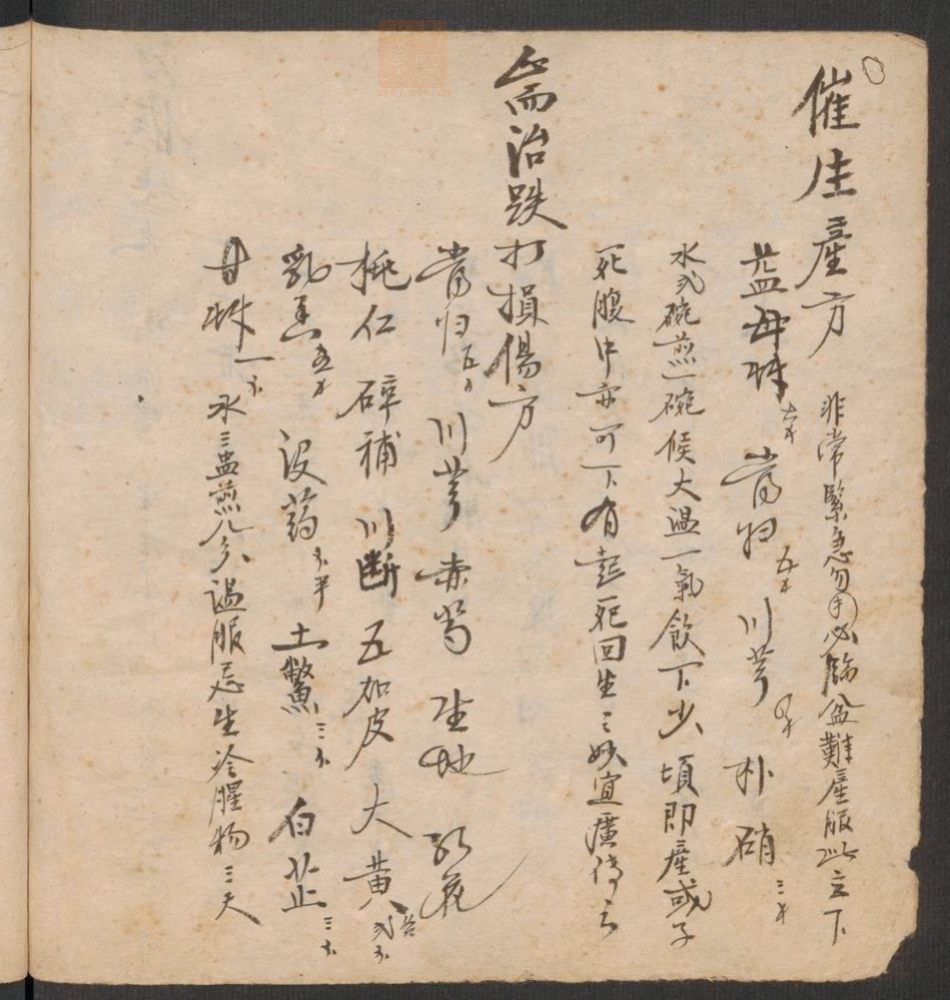 催生產方 非常緊急勿用必臨盆難產服此立下
益母草 六才 當归 五才 川芎 四才 朴硝 三才
水弍碗煎一碗候大溫一氣飲下少頃即產或子
死腹中亦可下有起死回生之妙宜廣傳之
耑治跌打損傷方
當归 五 川芎 赤芍 生地 红花
桃仁 碎補 川断 五加皮 大黃 各弍
乳香 五才 没药 半 土鱉 三 白芷 三
甘草 一 水三盅煎八分溫服忌生冷腥物三天